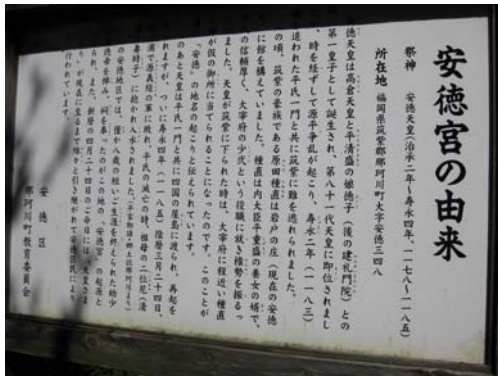 安徳宮の由来
祭神　安徳天皇(治承二年〜寿永四年、一一七八〜一一八五)
所在地　福岡県筑紫郡那珂川町大字安徳三四八
安徳天皇は高倉天皇と平清盛の娘徳子(後の建礼門院)との
第一皇子として誕生され、第八十一代天皇に即位されまし
、時を経ずして源平争乱が起こり、寿永二年(一一八三)
追われた平氏一門と共に筑紫に難を逃れられました。
の頃、筑紫の豪族である原田種直は岩戸の庄(現在の安徳
に館を構えていました。種直は内大臣平重盛の養女の婿で、
の信頼厚く、大宰府の少弐という役職に就き権勢を振るっ
ました。天皇が筑紫に下られた時は、大宰府に程近い種直
が仮の御所に当てられることになったのです。このことが
「安徳」の地名の起こりと伝えられています。
のあと天皇は平氏一門と共に四国の屋島に渡られ、再起を
れますが、ついに寿永四年(一一八五)陰暦三月二十四日、
浦で源義経の軍に敗れ、平氏の滅亡の時、祖母の二位尼(清
妻時子)に抱かれ入水されました
の安徳地区では、僅か八歳の短いご生涯を終えられた幼少
徳帝を悼み、祠を奉ったのがこの地の「安徳宮」の起源と
られ、また、新暦の四月二十四日のご命日には、
り」が現在に至るまで綿々と引き継がれて安徳区民により
行われています。
安徳区
那珂川町教育委員会